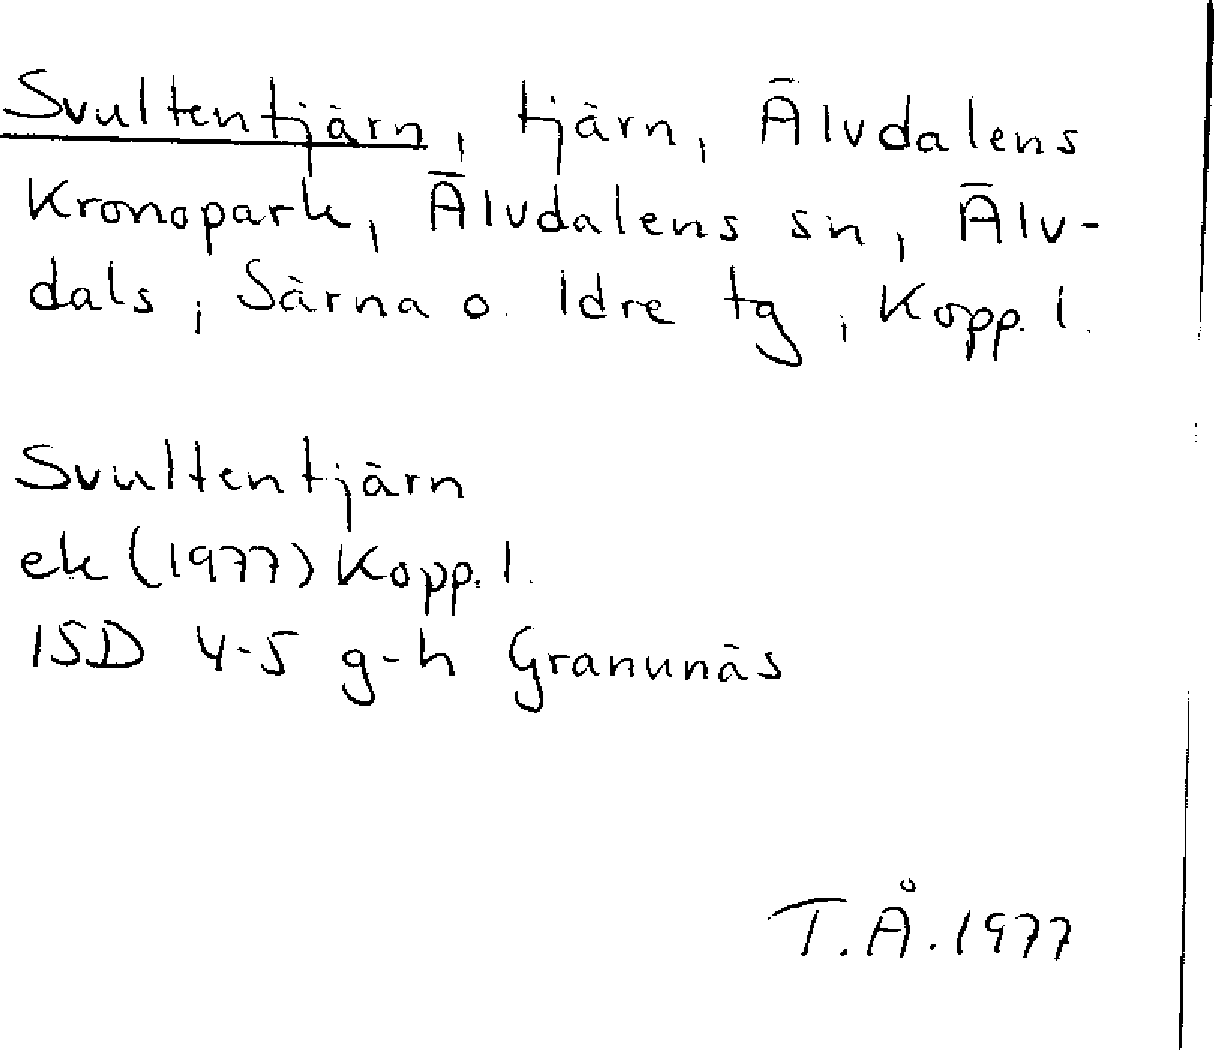 Svultentjärn, tjärn, Älvdalens
Kronopark, Älvdalens sn, Älv-
dals, Särna o. Idre tg, Kopp. l.
Svultentjärn
ek (1977) Kopp. l.
15D 4-5 g-h Granunäs
T.Å. 1977